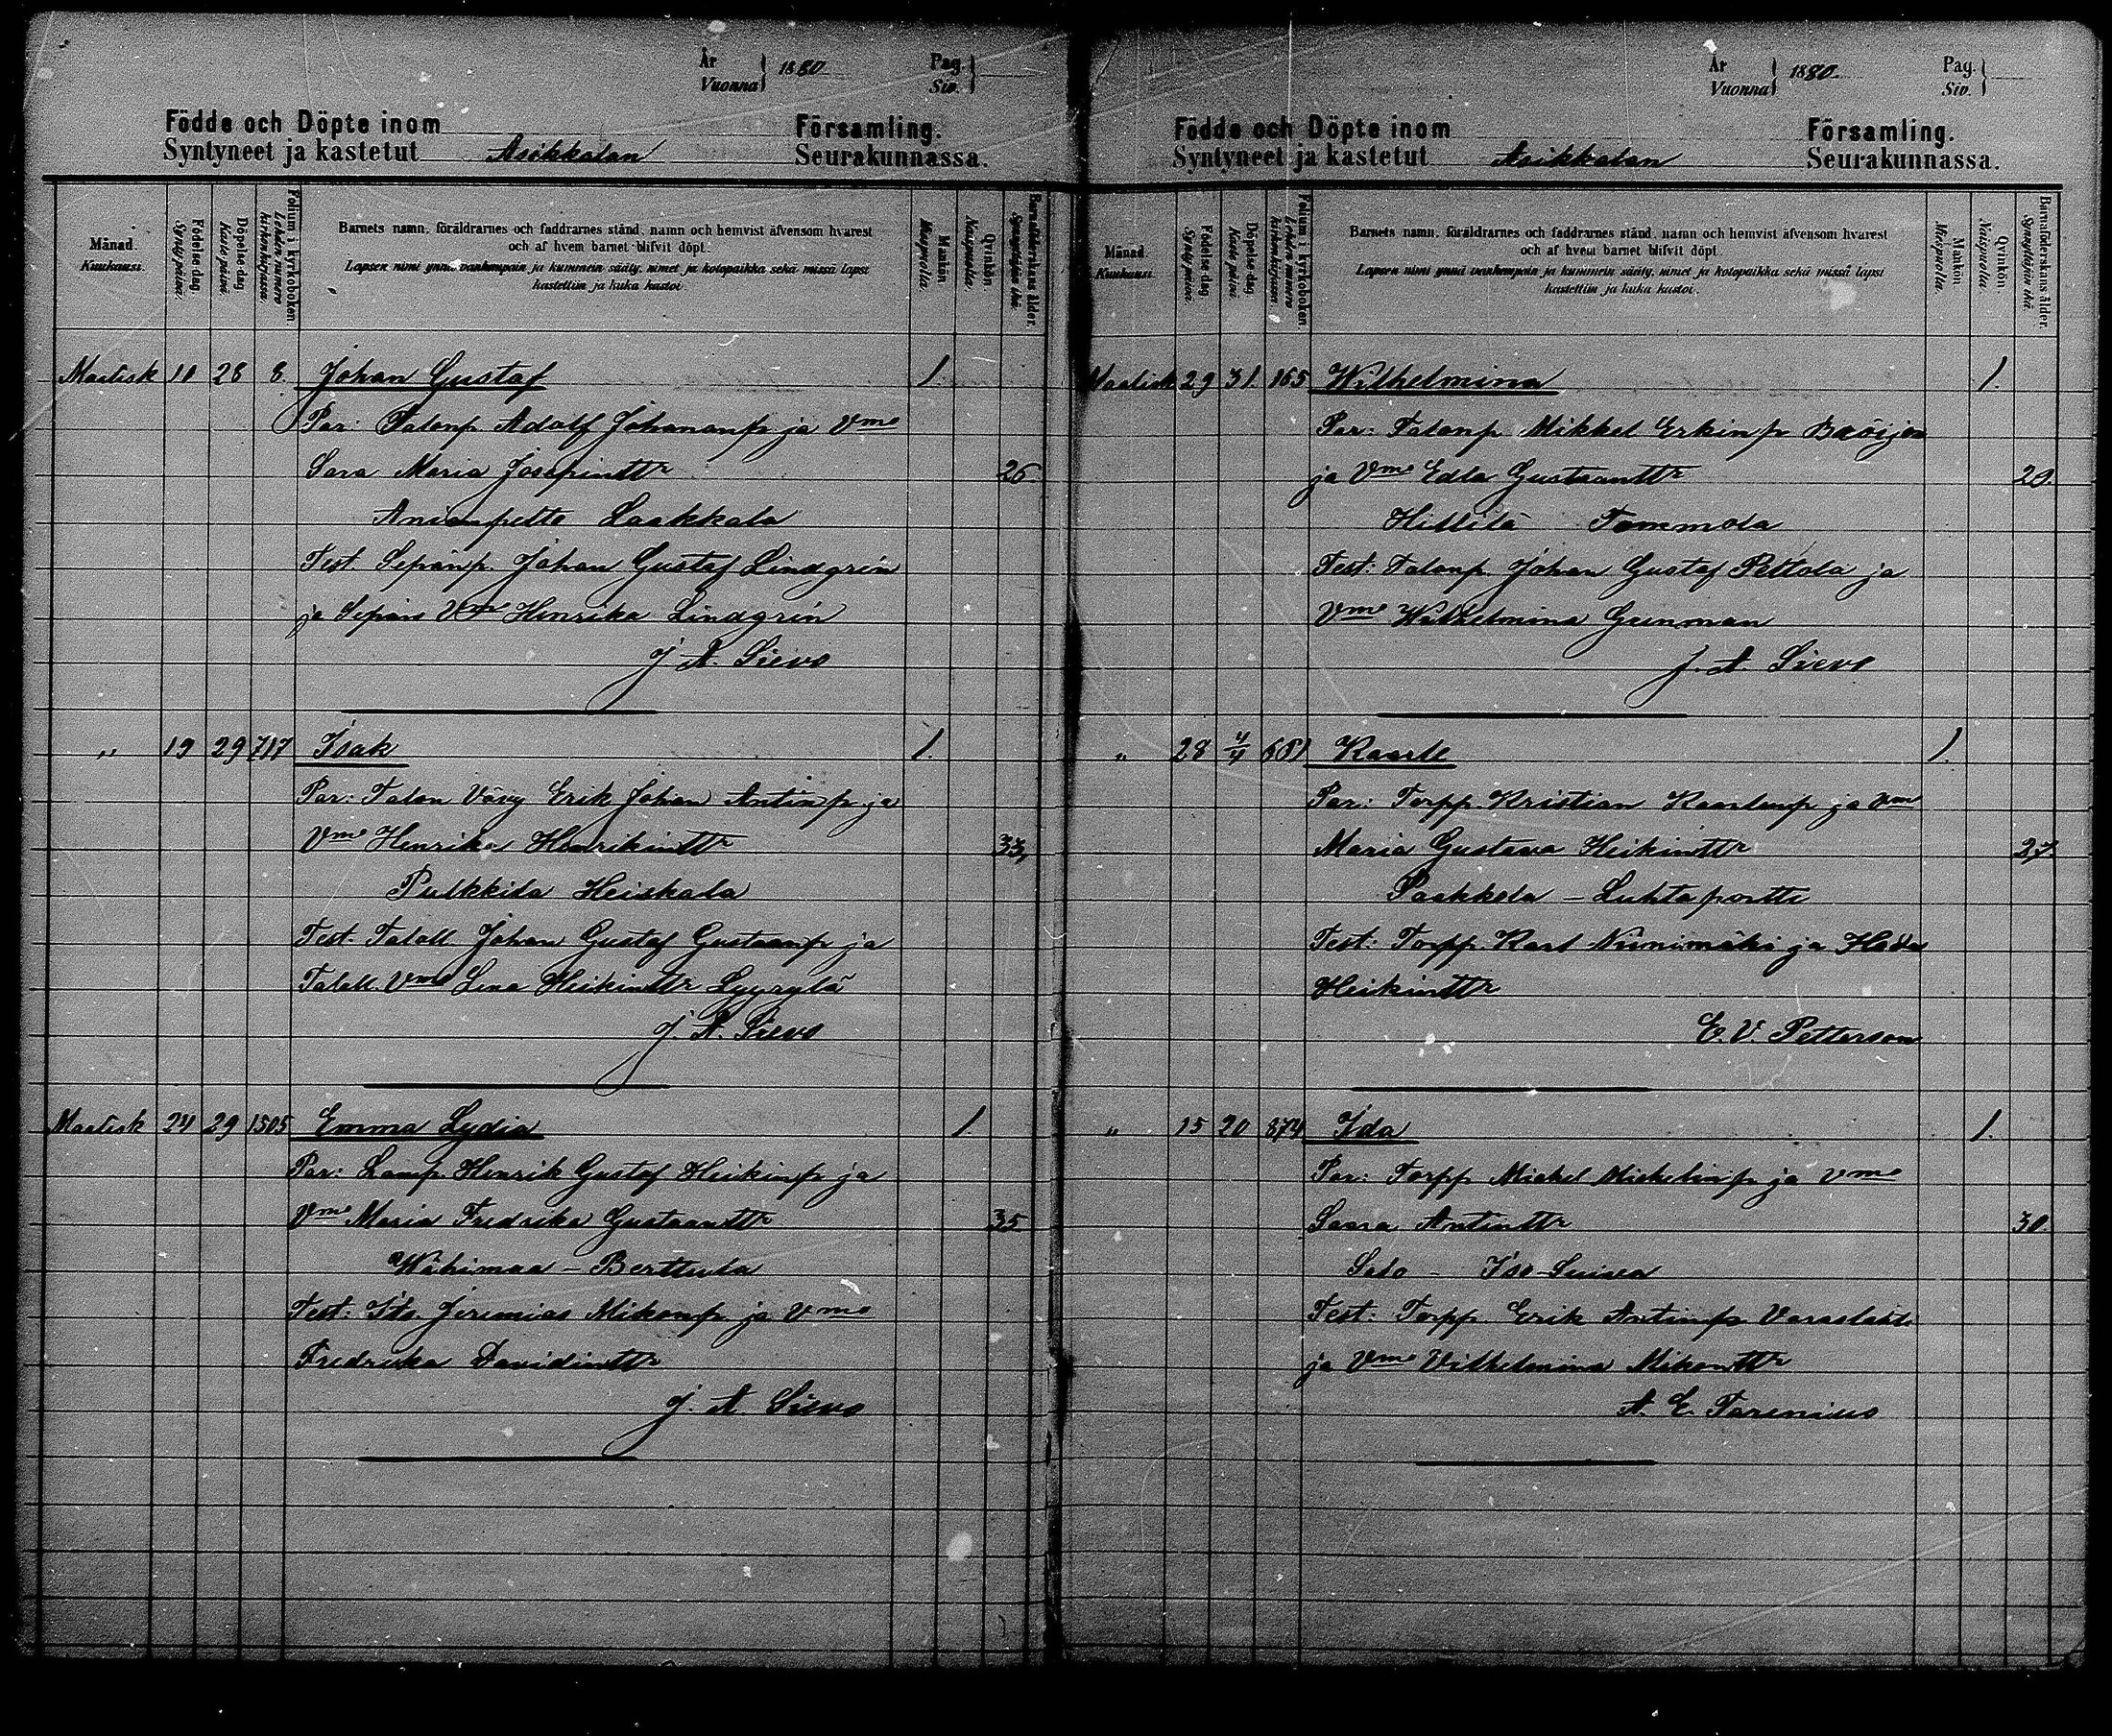 År
Vuonna } 1880
Pag.
Siv. }
Födde och Döpte inom Församling.
Syntyneet ja kastetut Asikkalan Seurakunnassa.
Månad.
Kuukausi.
Födelse dag.
Synty päivä.
Döpelse dag
Kaste päivä.
Folium i kyrkoboken.
Lehden numero
kirkonkirjassa.
Barnets namn, föräldrarnes och faddrarnes stånd, namn och hemvist äfvensom hvarest
och af hvem barnet blifvit döpt.
Lapsen nimi ynnä vanhempain ja kummein sääty, nimet ja kotopaikka sekä missä lapsi
kastettiin ja kuka kastoi.
Mankön
Miespuolia.
Qvinkön
Naispuolia.
Barnaföderskans ålder.
Synnyttäjän ikä.
Maalisk 10 28 8. Johan Gustaf 1.
Par: Talonp. Adolf Johananp. ja Vmo
Sara Maria Josepintr 26.
Anianpelto Laakkala
Test. Sepänp. Johan Gustaf Lindgrén
ja Sepäns Vmo Henrika Lindgrén
J. A. Sievo
„ 19 29 717 Isak 1.
Par: Talon Vävy Erik Johan Antinp. ja
Vmo Henrika Henrikintr 33,
Pulkkila Heiskala
Test. Talall. Johan Gustaf Gustaanp. ja
Talall. Vmo Lena Heikintr Lyyrylä
J. A. Sievo
Maalisk 24 29 1505 Emma Lydia 1.
Par: Lamp. Henrik Gustaf Heikinp. ja
Vmo Maria Fredrika Gustaantr 35
Wähimaa – Berttula
Test: Its. Jeremias Mikonp. ja Vmo
Fredrika Davidintr
J. A. Sievo
År
Vuonna } 1880.
Pag.
Siv. }
Födde och Döpte inom Församling.
Syntyneet ja kastetut Asikkalan Seurakunnassa.
Månad
Kuukausi.
Födelse dag
Synty päivä.
Döpelse dag
Kaste päivä.
Folium i kyrkoboken.
Lehden numero
kirkonkirjassa.
Barnets namn, föräldrarnes och faddrarnes stånd, namn och hemvist äfvensom hvarest
och af hvem barnet blifvit döpt.
Lapsen nimi ynnä vanhempain ja kummein sääty, nimet ja kotopaikka sekä missä lapsi
kastettiin ja kuka kastoi.
Mankön
Miespuolia.
Qvinkön
Naispuolia.
Barnaföderskans ålder.
Synnyttäjän ikä.
Maalisk 29 31. 165 Wilhelmina 1.
Par: Talonp. Mikkel Erkinp.
ja Vmo Edla Gustaantr 20.
Hillilä Tommola
Test: Talonp. Johan Gustaf Peltola ja
Vmo Wilhelmina Grenman
J. A. Sievo
„ 28 4/4 651 Kaarle 1.
Par: Torpp. Kristian Kaarlenp. ja Vmo
Maria Gustava Heikintr 27.
Paakkola – Luhtaportti
Test: Torpp. Karl Niinimäki ja
Heikintr
E. V. Petterson
„ 15 20 874 Ida 1.
Par: Torpp. Mickel Mickelinp. ja Vmo
Saara Antintr 30.
Salo – Iso-
Test: Torpp. Erik Antinp. Varaslahti
ja Vmo Vilhelmina Mikontr
A. E. Tarenius